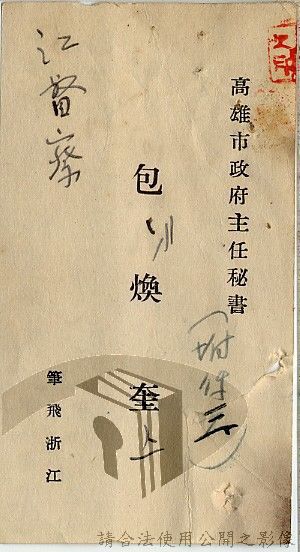 高雄市政府主任秘書
(附件三)
包煥奎
上
筆飛浙江
江督察
請合法使用公開之影像